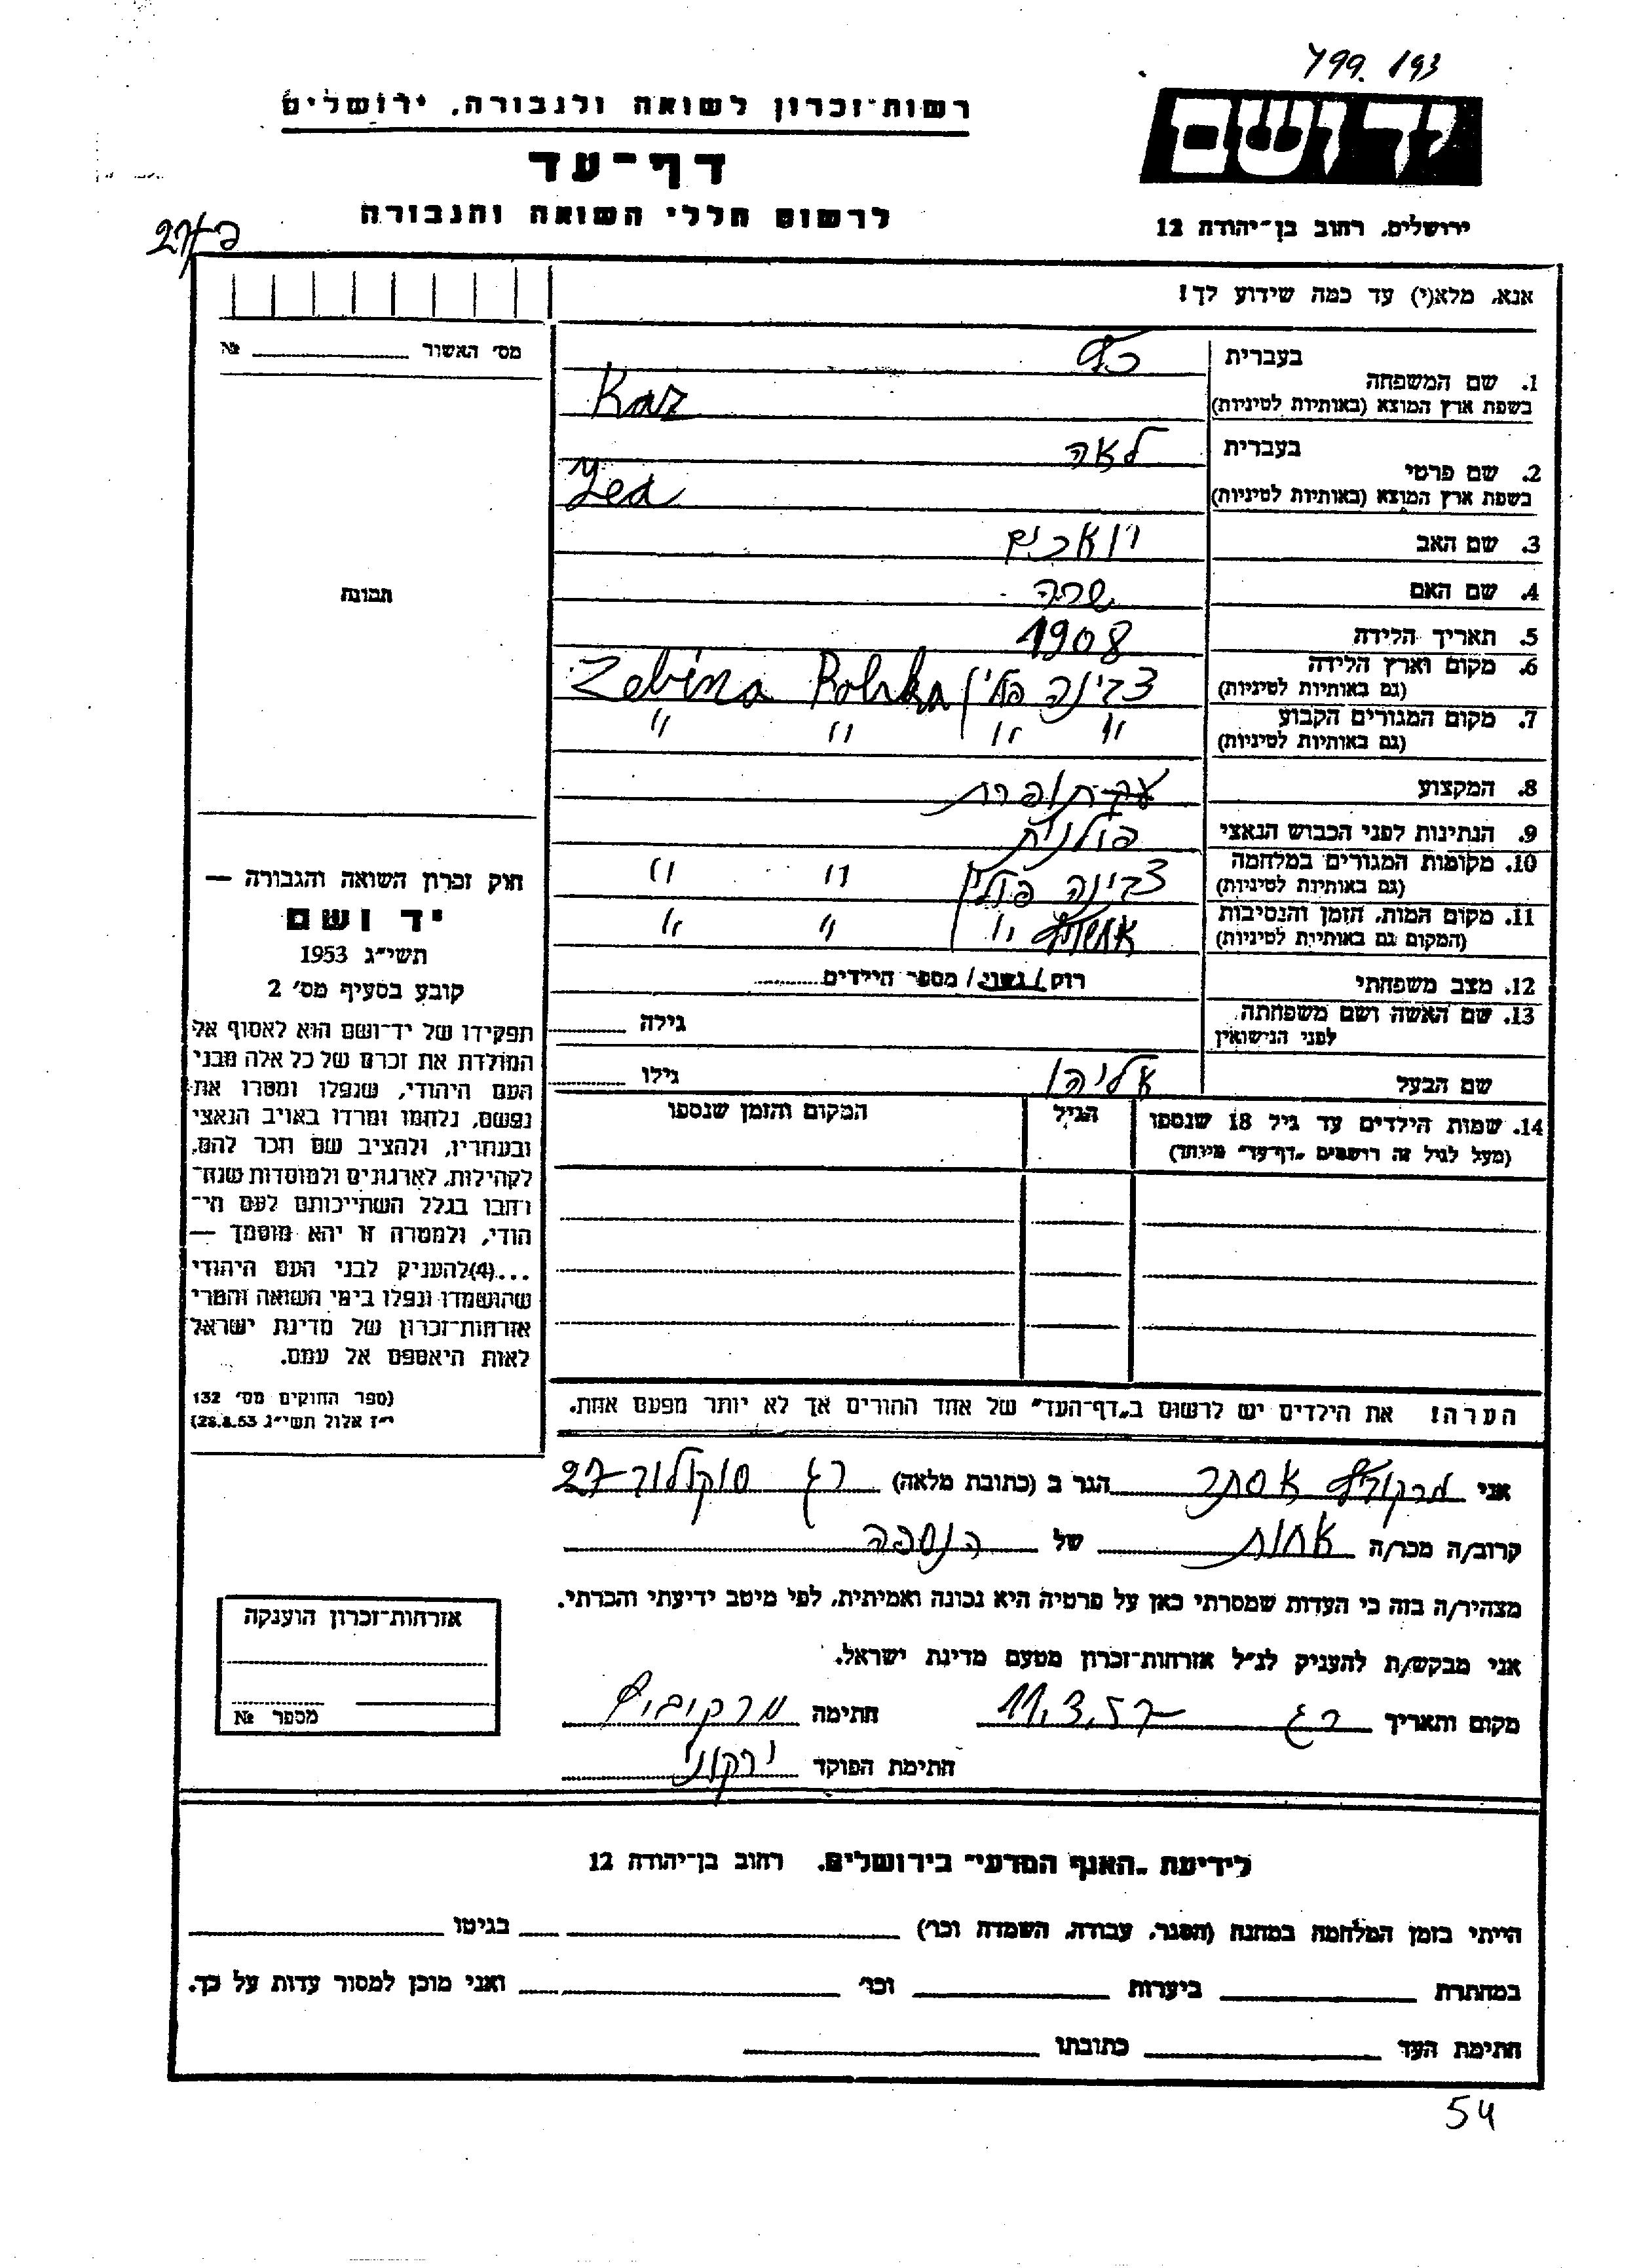 199.193
יד ושם
רשות־זכרון לשואה ולגבורה, ירושלים
דף־עד
לרשום חללי השואה והגבורה
ירושלים, רחוב בן־יהודה 12
אנא, מלא(י) עד כמה שידוע לך!
מס׳ האשור № 
1. שם המשפחה
בעברית
כץ
בשפת ארץ המוצא (באותיות לטיניות)
Kaz
2. שם פרטי
בעברית
לאה
בשפת ארץ המוצא (באותיות לטיניות)
Lea
3. שם האב
4. שם האם שרה
5. תאריך הלידה 1908
6. מקום וארץ הלידה צבינה פולין Zebina Polska
(גם באותיות לטיניות)
7. מקום המגורים הקבוע " " " "
(גם באותיות לטיניות)
8. המקצוע
9. הנתינות לפני הכבוש הנאצי פולנית
10. מקומות המגורים במלחמה צבינה פולין " "
(גם באותיות לטיניות)
11. מקום המות, הזמן והנסיבות " " "
(המקום גם באותיות לטיניות)
12. מצב משפחתי רוק / נשוי / מספר הילדים
13. שם האשה ושם משפחתה גילה
לפני הנישואין
שם הבעל אליהו גילו
14. שמות הילדים עד גיל 18 שנספו הגיל המקום והזמן שנספו
(מעל לגיל זה רושמים „דף־עד” מיוחד)
הערה! את הילדים יש לרשום ב„דף־העד” של אחד ההורים אך לא יותר מפעם אחת.
תמונה
חוק זכרון השואה והגבורה —
יד ושם
תשי״ג 1953
קובע בסעיף מס׳ 2
תפקידו של יד־ושם הוא לאסוף אל
המולדת את זכרם של כל אלה מבני
העם היהודי, שנפלו ומסרו את
נפשם, נלחמו ומרדו באויב הנאצי
ובעוזריו, ולהציב שם וזכר להם,
לקהילות, לארגונים ולמוסדות שנח־
רבו בגלל השתייכותם לעם הי־
הודי, ולמטרה זו יהא מוסמך —
...(4)להעניק לבני העם היהודי
שהושמדו ונפלו בימי השואה והמרי
אזרחות־זכרון של מדינת ישראל
לאות היאספם אל עמם.
(ספר החוקים מס׳ 132
י״ז אלול תשי״ג 28.8.53)
אני אסתר הגר ב (כתובת מלאה) רג סוקולוב 27
קרוב/ה מכר/ה אחות של הנספה
מצהיר/ה בזה כי העדות שמסרתי כאן על פרטיה היא נכונה ואמיתית, לפי מיטב ידיעתי והכרתי.
אני מבקש/ת להעניק לנ״ל אזרחות־זכרון מטעם מדינת ישראל.
מקום ותאריך רג 11.3.57 חתימה
חתימת הפוקד ירקוני
אזרחות־זכרון הוענקה
מספר №
לידיעת „האגף המדעי” בירושלים, רחוב בן־יהודה 12
הייתי בזמן המלחמה במחנה (הסגר, עבודה, השמדה וכו׳) בגיטו
במחתרת ביערות וכו׳ ואני מוכן למסור עדות על כך.
חתימת העד כתובתו
54